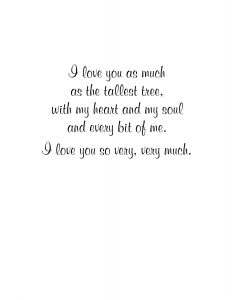 I love you as much
as the tallest tree,
with my heart and my soul
and every bit of me.
I love you so very, very much.